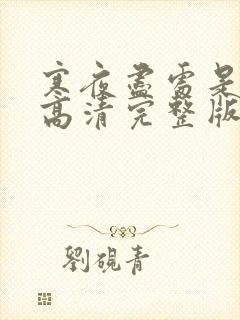 寒夜盡處是
高清完整版
劉硯青